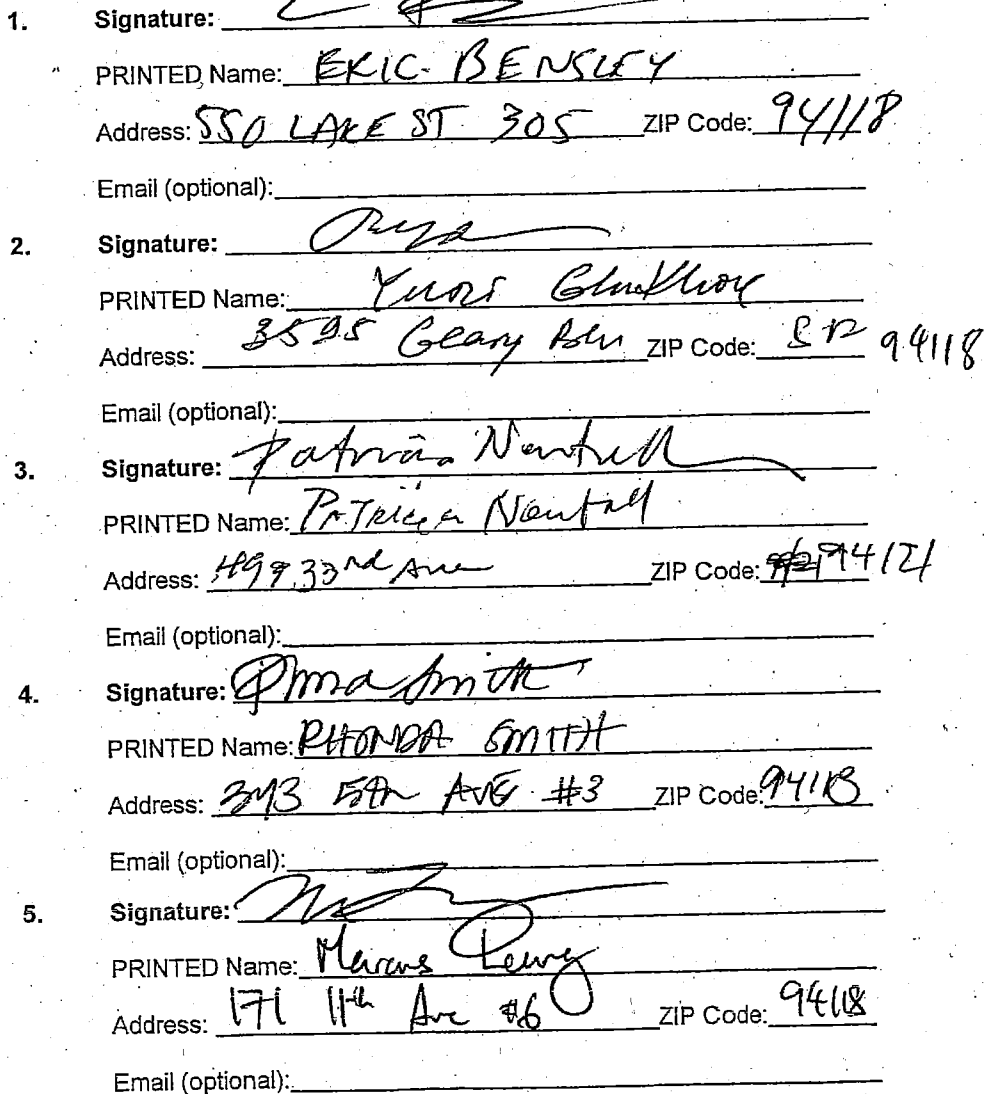 1. Signature:
PRINTED Name: ERIC BENSLEY
Address: 550 LAKE ST 305 ZIP Code: 94118
Email (optional):
2. Signature:
PRINTED Name: Yuori
Address: 3595 Geary ZIP Code: 94118
Email (optional):
3. Signature: Patricia
PRINTED Name: Patricia
Address: 499 33rd Ave ZIP Code: 94121
Email (optional):
4. Signature: Smith
PRINTED Name: RHONDA SMITH
Address: 343 5th AVE #3 ZIP Code: 94118
Email (optional):
5. Signature:
PRINTED Name: Marcus
Address: 171 11th Ave #6 ZIP Code: 94118
Email (optional):